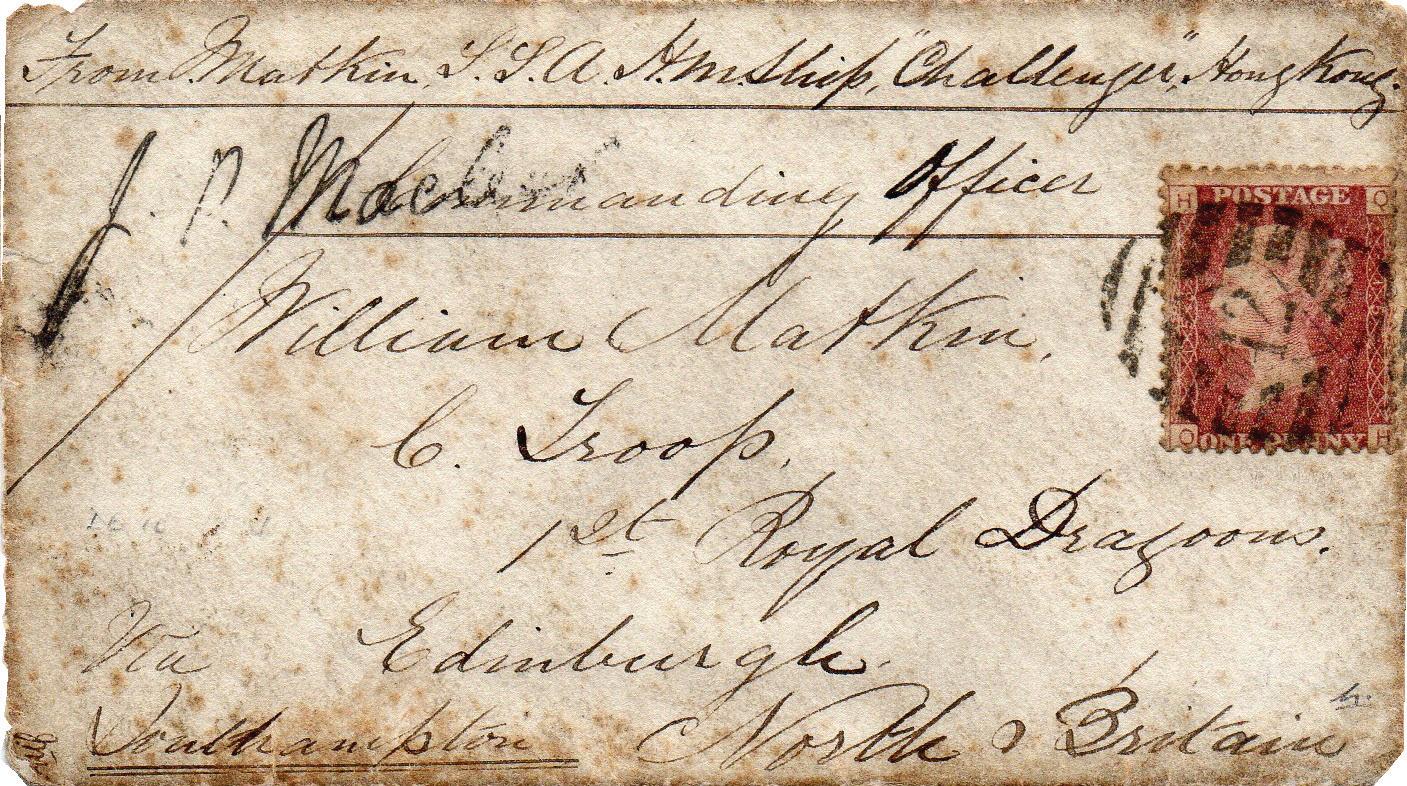 From J. Matkin, S.S.A. H.M. Ship, "Challenger", Hong Kong.
J. P. Maclear Commanding Officer
William Matkin,
C. Troop,
1st Royal Dragoons.
Via Edinburgh.
Southampton North Britain
H POSTAGE Q
12
Q ONE PENNY H